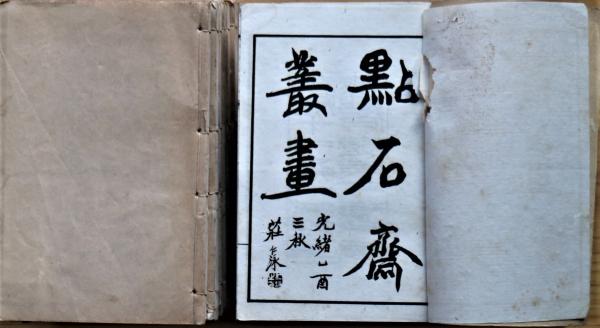 點石齋
叢畫
光緒乙酉
三秋
莊